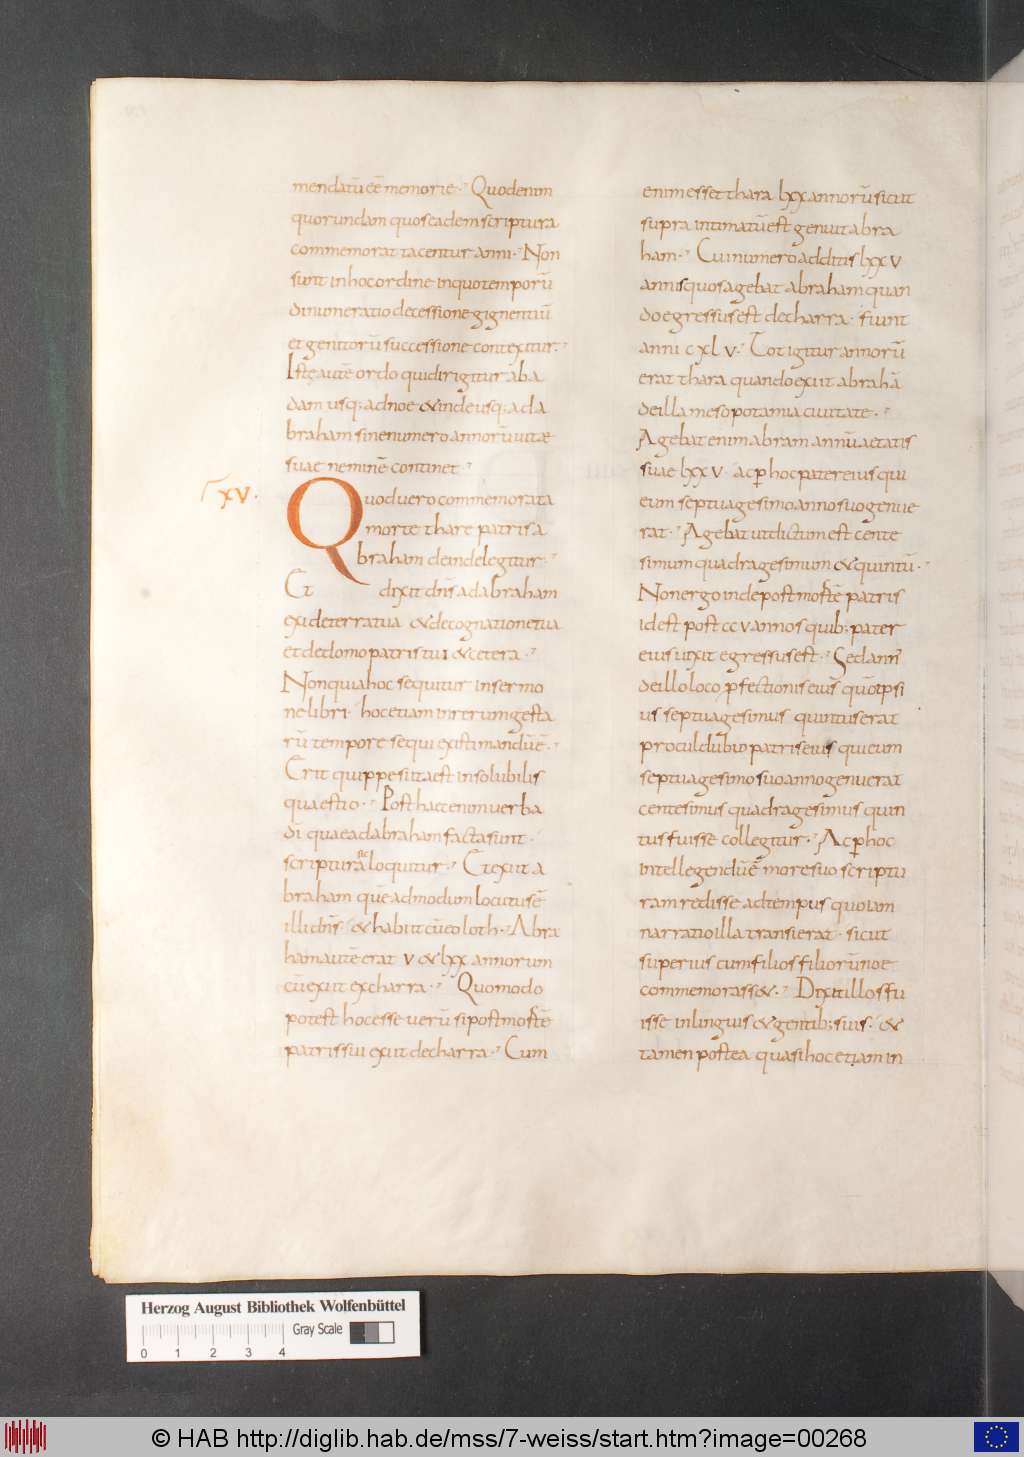 mendatū eē memorie · Quod enim
quorundam quos eadem scriptura
commemorat tacentur anni · Non
sunt in hoc ordine in quo temporū
dinumeratio decessione gignentiū
et genitorū successione contexitur ·
Iste autē ordo qui dirigitur ab a
dam usq; ad noe & inde usq; ad a
braham sine numero annorū uitæ
suae neminē continet ·
xv.
Quod uero commemorata
morte thare patris a
braham deinde legitur ·
Et dixit dn̄s ad abraham
exi de terra tua & de cognatione tua
et de domo patris tui & cetera ·
Non quia hoc sequitur in sermo
ne libri · hoc etiam in rerum gesta
rū tempore sequi existimandū ē ·
Erit quippe si ita est insolubilis
quaestio · Post haec enim uerba
dī quae ad abraham facta sunt ·
scriptura sic loquitur · Et exiit a
braham quē admodum locutus ē
illi dn̄s · & habiit cū eo loth · Abra
ham autē erat v & lxx annorum
cū exiit ex charra · Quomodo
potest hoc esse uerū si post mortē
patris sui exiit de charra · Cum
enim esset thara lxx annorū sicut
supra intimatū est genuit abra
ham · Cui numero additis lxx v
annis quos agebat abraham quan
do egressus est de charra · fiunt
anni c xl v · Tot igitur annorū
erat thara quando exiit abrahā
de illa mesopotamia ciuitate ·
Agebat enim abram annū aetatis
suae lxx v · ac ꝑ hoc pater eius qui
eum septuagesimo anno suo genue
rat · Agebat ut dictum est cente
simum quadragesimum & quintū ·
Non ergo inde post mortē patris
id est post ccv annos quib; pater
eius uixit egressus est · Sed ann
de illo loco ꝓfectionis eiūs quō ipsi
us septuagesimus quintus erat
procul dubio patris eius qui eum
septuagesimo suo anno genuerat
centesimus quadragesimus quin
tus fuisse collegitur · Ac ꝑ hoc
intellegendū ē more suo scriptu
ram redisse ad tempus quo iam
narratio illa transierat · sicut
superius cum filios filiorū noe
commemorass& · Dixit illos fu
isse in linguis & gentib; suis · &
tamen postea quasi hoc etiam in
Herzog August Bibliothek Wolfenbüttel
Gray Scale
0 1 2 3 4
© HAB http://diglib.hab.de/mss/7-weiss/start.htm?image=00268